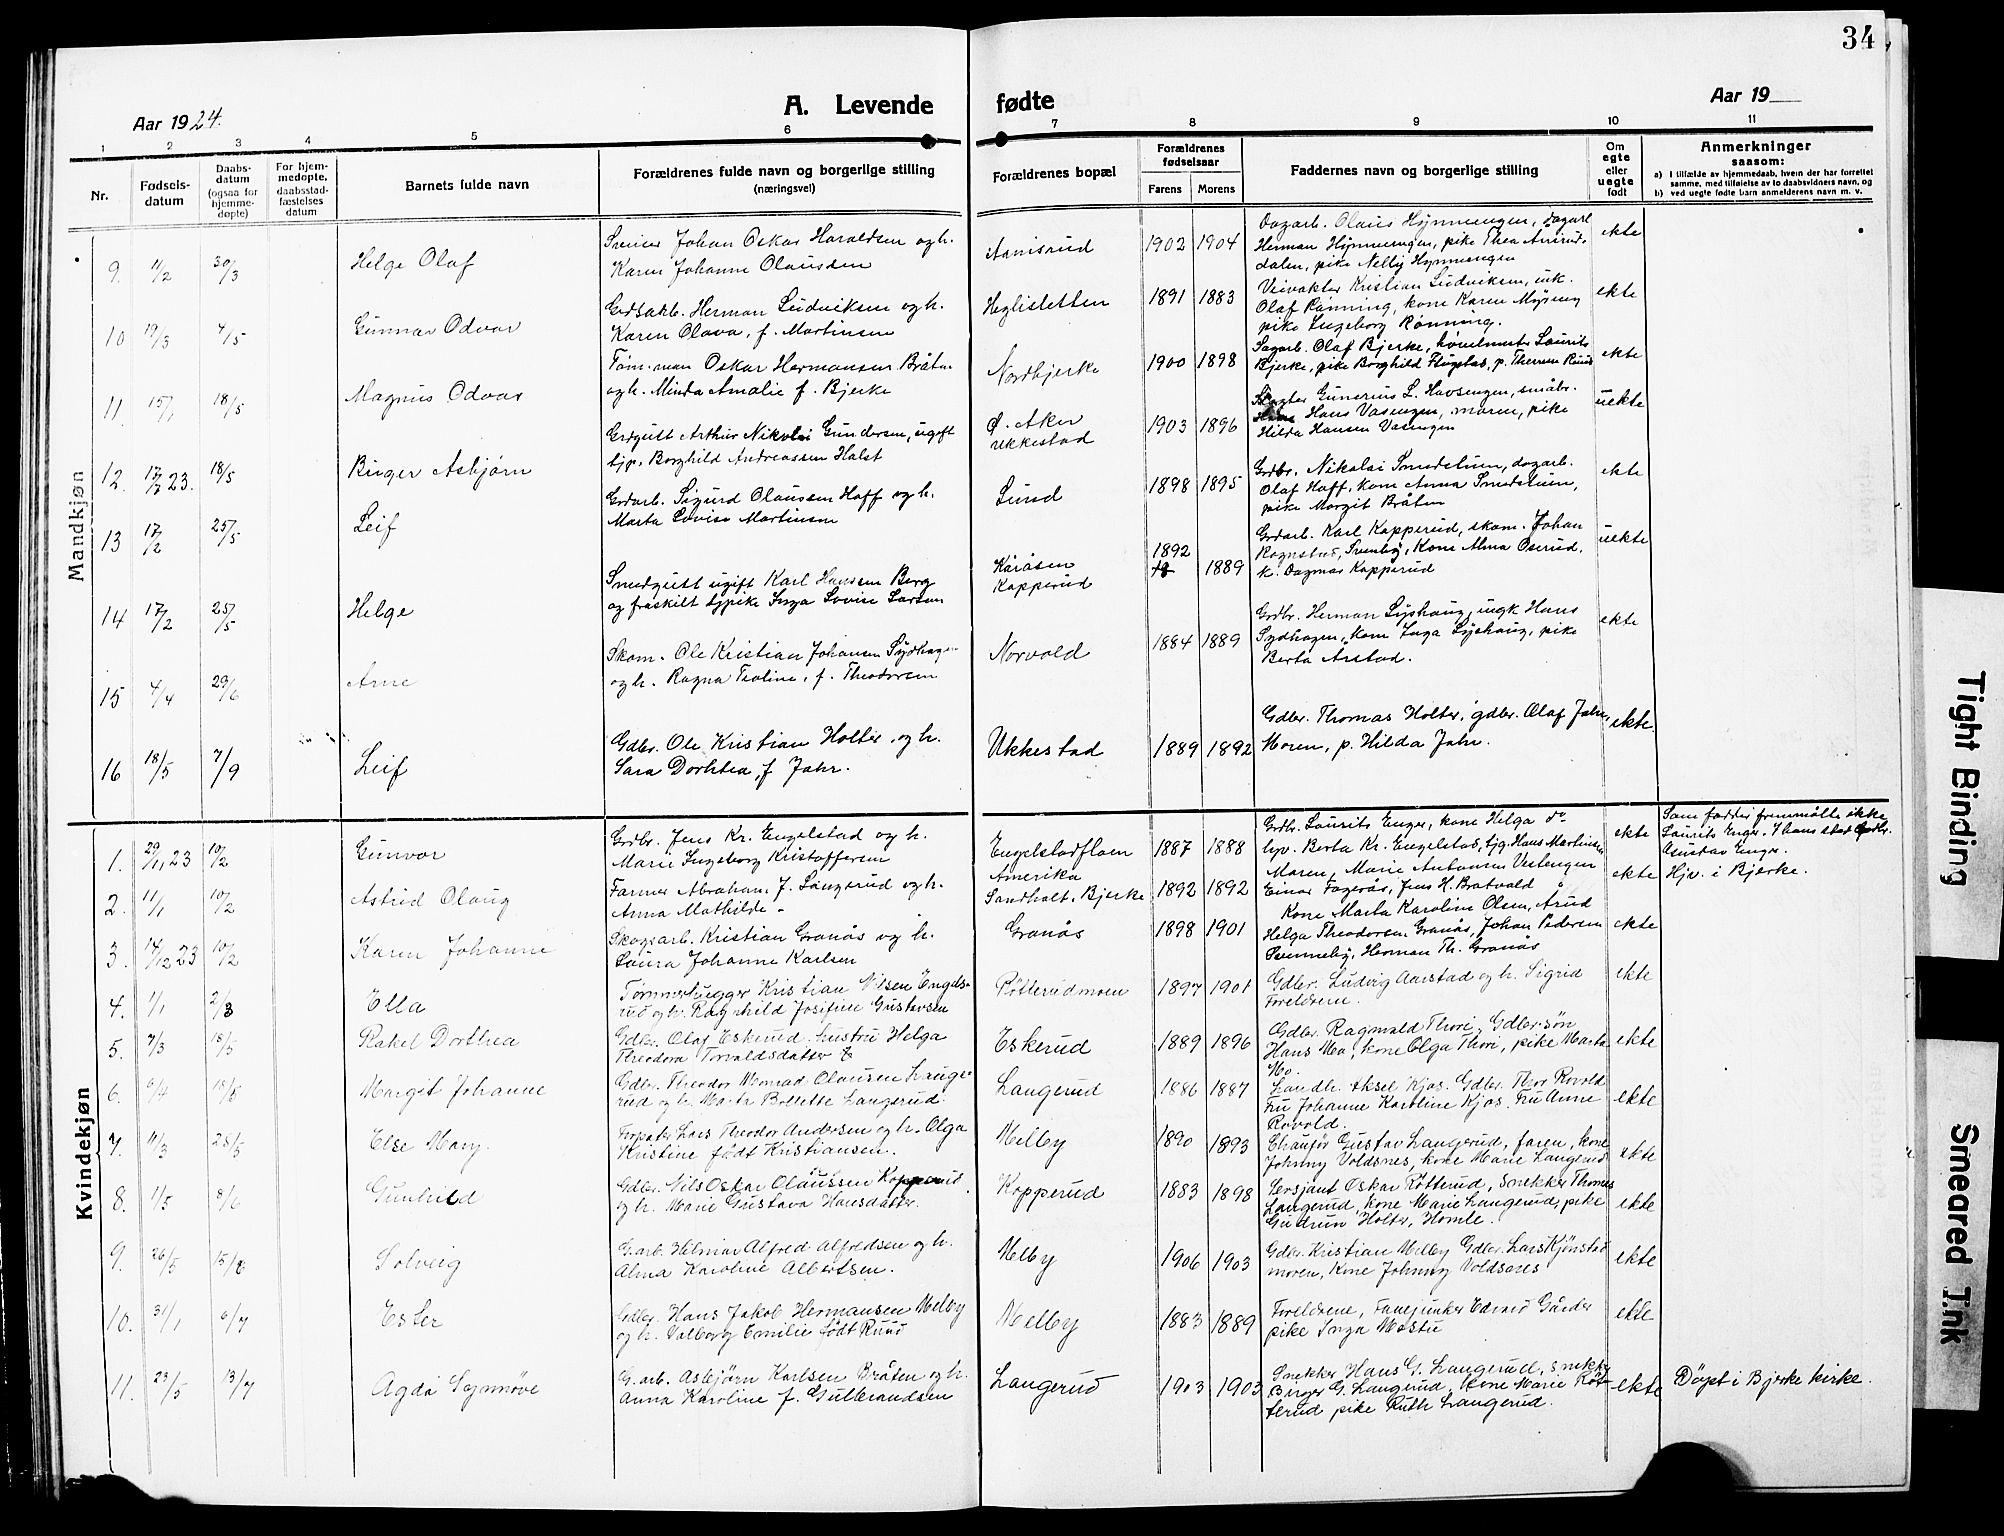 34
Aar 1924.
A. Levende
fødte
Aar 19
1 2 3 4 5 6 7 8 9 10 11
Nr.
Fødsels-
datum
Daabs-
datum
(ogsaa for
hjemme-
døpte)
For hjem-
medøpte,
daabsstad-
fæstelses
datum
Barnets fulde navn
Forældrenes fulde navn og borgerlige stilling
(næringsvei)
Forældrenes bopæl
Forældrenes
fødselsaar
Farens Morens
Faddernes navn og borgerlige stilling
Om
egte
eller
uegte
født
Anmerkninger
saasom:
a) I tilfælde av hjemmedaab, hvem der har forrettet
samme, med tilføielse av to daabsvidners navn, og
b) ved uegte fødte barn anmelderens navn m. v.
Mandkjøn
9. 11/2 30/3 Helge Olaf
Johan Oskar Haraldsen og h.
Karen Johanne Olaussen
1902 1904
Dagarb. Olaus Hynnengen, dagarb.
Herman Hynnengen, pike Thea Amrud-
dalen, pike Nelly Hynnengen
ekte
10 19/3 4/5 Gunnar Odvar
Grdsarb. Herman Ludviksen og h.
Karen Olava, f. Martinsen
Heglisletten 1891 1883
Veivakter Kristian Ludviksen, unk.
Olaf Rønning, kone Karen Mysen
pike Ingeborg Rønning.
ekte
11. 15/1 18/5 Magnus Odvar
Tøm.man Oskar Hermansen Bråten
og h. Minda Amalie f. Bjerke
Nordbjerke 1900 1898
Sagarb. Olaf Bjerke, Laurits
Bjerke, pike Borghild Flugstad, p. Therese Ruud
ekte
12. 17/7 23. 18/5 Birger Asbjørn
Grdgutt Arthur Nikolai Gundersen, ugift
tjp. Borghild Andreassen Holst
Ø. Aker
Ukkestad
1903 1896
Gunerius L. Havsengen, småbr.
Hans Vasengen, moren, pike
Hilda Hansen Vasengen
uekte
13 17/2 25/5 Leif
Grdarb. Sigurd Olaussen Hoff og h.
Marta Lovise Martinsen
Lund 1898 1895
Grdbr. Nikolai Smedstuen, dagarb.
Olaf Hoff, kone Anna Smedstuen,
pike Margit Bråten
ekte
14 17/2 25/5 Helge
Smedgutt ugift Karl Hanssen Berg
og fraskilt tjpike Inga Lovise Larsen
Kåråsen
Kopperud
1892 1889
Grdarb. Karl Kopperud, skom. Johan
Rognstad, Svenby, Kone Alma Oserud,
k. Dagmar Kopperud
uekte
15 4/4 29/6 Arne
Skom. Ole Kristian Johansen Sydhagen
og h. Ragna Teoline, f. Theodorsen
Norvold 1884 1889
Grdbr. Herman Lyshaug, ungk. Hans
Sydhagen, kone Inga Lyshaug, pike
Berta Arstad.
ekte
16 18/5 7/9 Leif
Gdbr. Ole Kristian Holter og h.
Sara Dorhtea, f Jahr.
Ukkestad 1889 1892
Gdbr. Thomas Holter, gdbr. Olaf Jahr,
Moren, p. Hilda Jahr.
ekte.
Kvindekjøn
1. 29/11 23 10/2 Gunvor
Grdbr. Jens Kr. Engelstad og h.
Marie Ingeborg Kristoffersen
Engelstadfloen 1887 1888
Grdbr. Laurits Enger, kone Helga do
Berta Kr. Engelstad, tjg. Hans Martinsen
ekte
Som fadder fremmøtte ikke
Laurits Enger. I hans sted Grdbr.
Gustav Enger.
2. 11/1 10/2 Astrid Olaug
Farmer Abraham J. Langerud og h.
Anna Mathilde
Amerika
Sandholt, Bjerke 1892 1892
Maren, Marie Antonsen Vestengen
Einar Fagerås, Jens H. Bratvold
ekte
Hjv. i Bjerke.
3. 14/12 23 10/2 Karen Johanne
Skogsarb. Kristian Granås og h.
Laura Johanne Karlsen
Granås 1898 1901
Kone Marta Karoline Olsen, Årud
Helga Theodorsen Granås, Johan Pedersen
Svenneby, Herman Th. Granås
ekte
4. 1/1 2/3 Ella
Tømmerhugger Kristian Nilsen Engels-
rud og h. Ragnhild Josefine Gustavsen
Røtterudmoen 1897 1901
Gdbr. Ludvig Aarstad og h. Sigrid
Foreldrene.
ekte
5. 7/3 18/5 Rakel Dorthea
Gdbr. Olaf Eskerud hustru Helga
Theodora Torvaldsdatter
Eskerud 1889 1896
Gdbr. Ragnvald Thori, Gdbr.søn
Hans Mo, kone Olga Thori, pike Marta
Mo.
ekte
6. 6/4 18/5 Margit Johanne
Gdbr. Theodor Monrad Olausen Lange-
rud og h. Marta Bollette Langerud.
Langerud 1886 1887
Landh. Aksel Kjos. Gdbr. Thor Rovold
Fru Johanne Karoline Kjos. Fru Anne
Rovold.
ekte
7. 11/3 28/5 Else Mary.
Forpakter Lars Theodor Andersen og h. Olga
Kristine født Kristiansen.
Melby 1890 1893
Chaufør Gustav Langerud, faren, kone
Johnny Voldsnes, kone Marie Langerud
ekte
8. 1/5 8/6 Gunhild
Gdbr. Nils Oskar Olaussen Kopperud
og h. Marie Gustava Hansdatter.
Kopperud 1883 1898
Sersjant Oskar Røtterud, snekker Thomas
Langerud, kone Marie Langerud, pike
Gudrun Holter, Homle.
ekte
9. 26/5 15/8 Solveig
G.arb. Hilmar Alfred Alfredsen og h.
Alma Karoline Albertsen.
Melby 1906 1903
Gdbr. Kristian Melby Gdbr. Lars Kjønstad
moren, Kone Johnny Voldsnes
ekte
10. 31/1 6/7 Ester
Gdbr. Hans Jakob Hermansen Melby
og h. Valborg Emilie født Ruud
Melby 1883 1889
Foreldrene, Fanejunker Edvard Gårder
pike Inga Mostu
ekte
11. 23/5 13/7 Agda Synnøve
G.arb. Asbjørn Karlsen Bråten og h.
Anna Karoline f. Gulbrandsen
Langerud 1903 1903
Snekker Hans G. Langerud, snekker
Birger G. Langerud, kone Marie Røt-
terud pike Ruth Langerud.
ekte
Døpt i Bjerke kirke.
Tight Binding
Smeared Ink